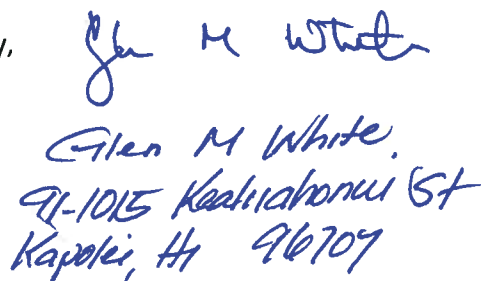 y.
Glen M White
Glen M White
91-1015 Keahiahonui St
Kapolei, HI 96707